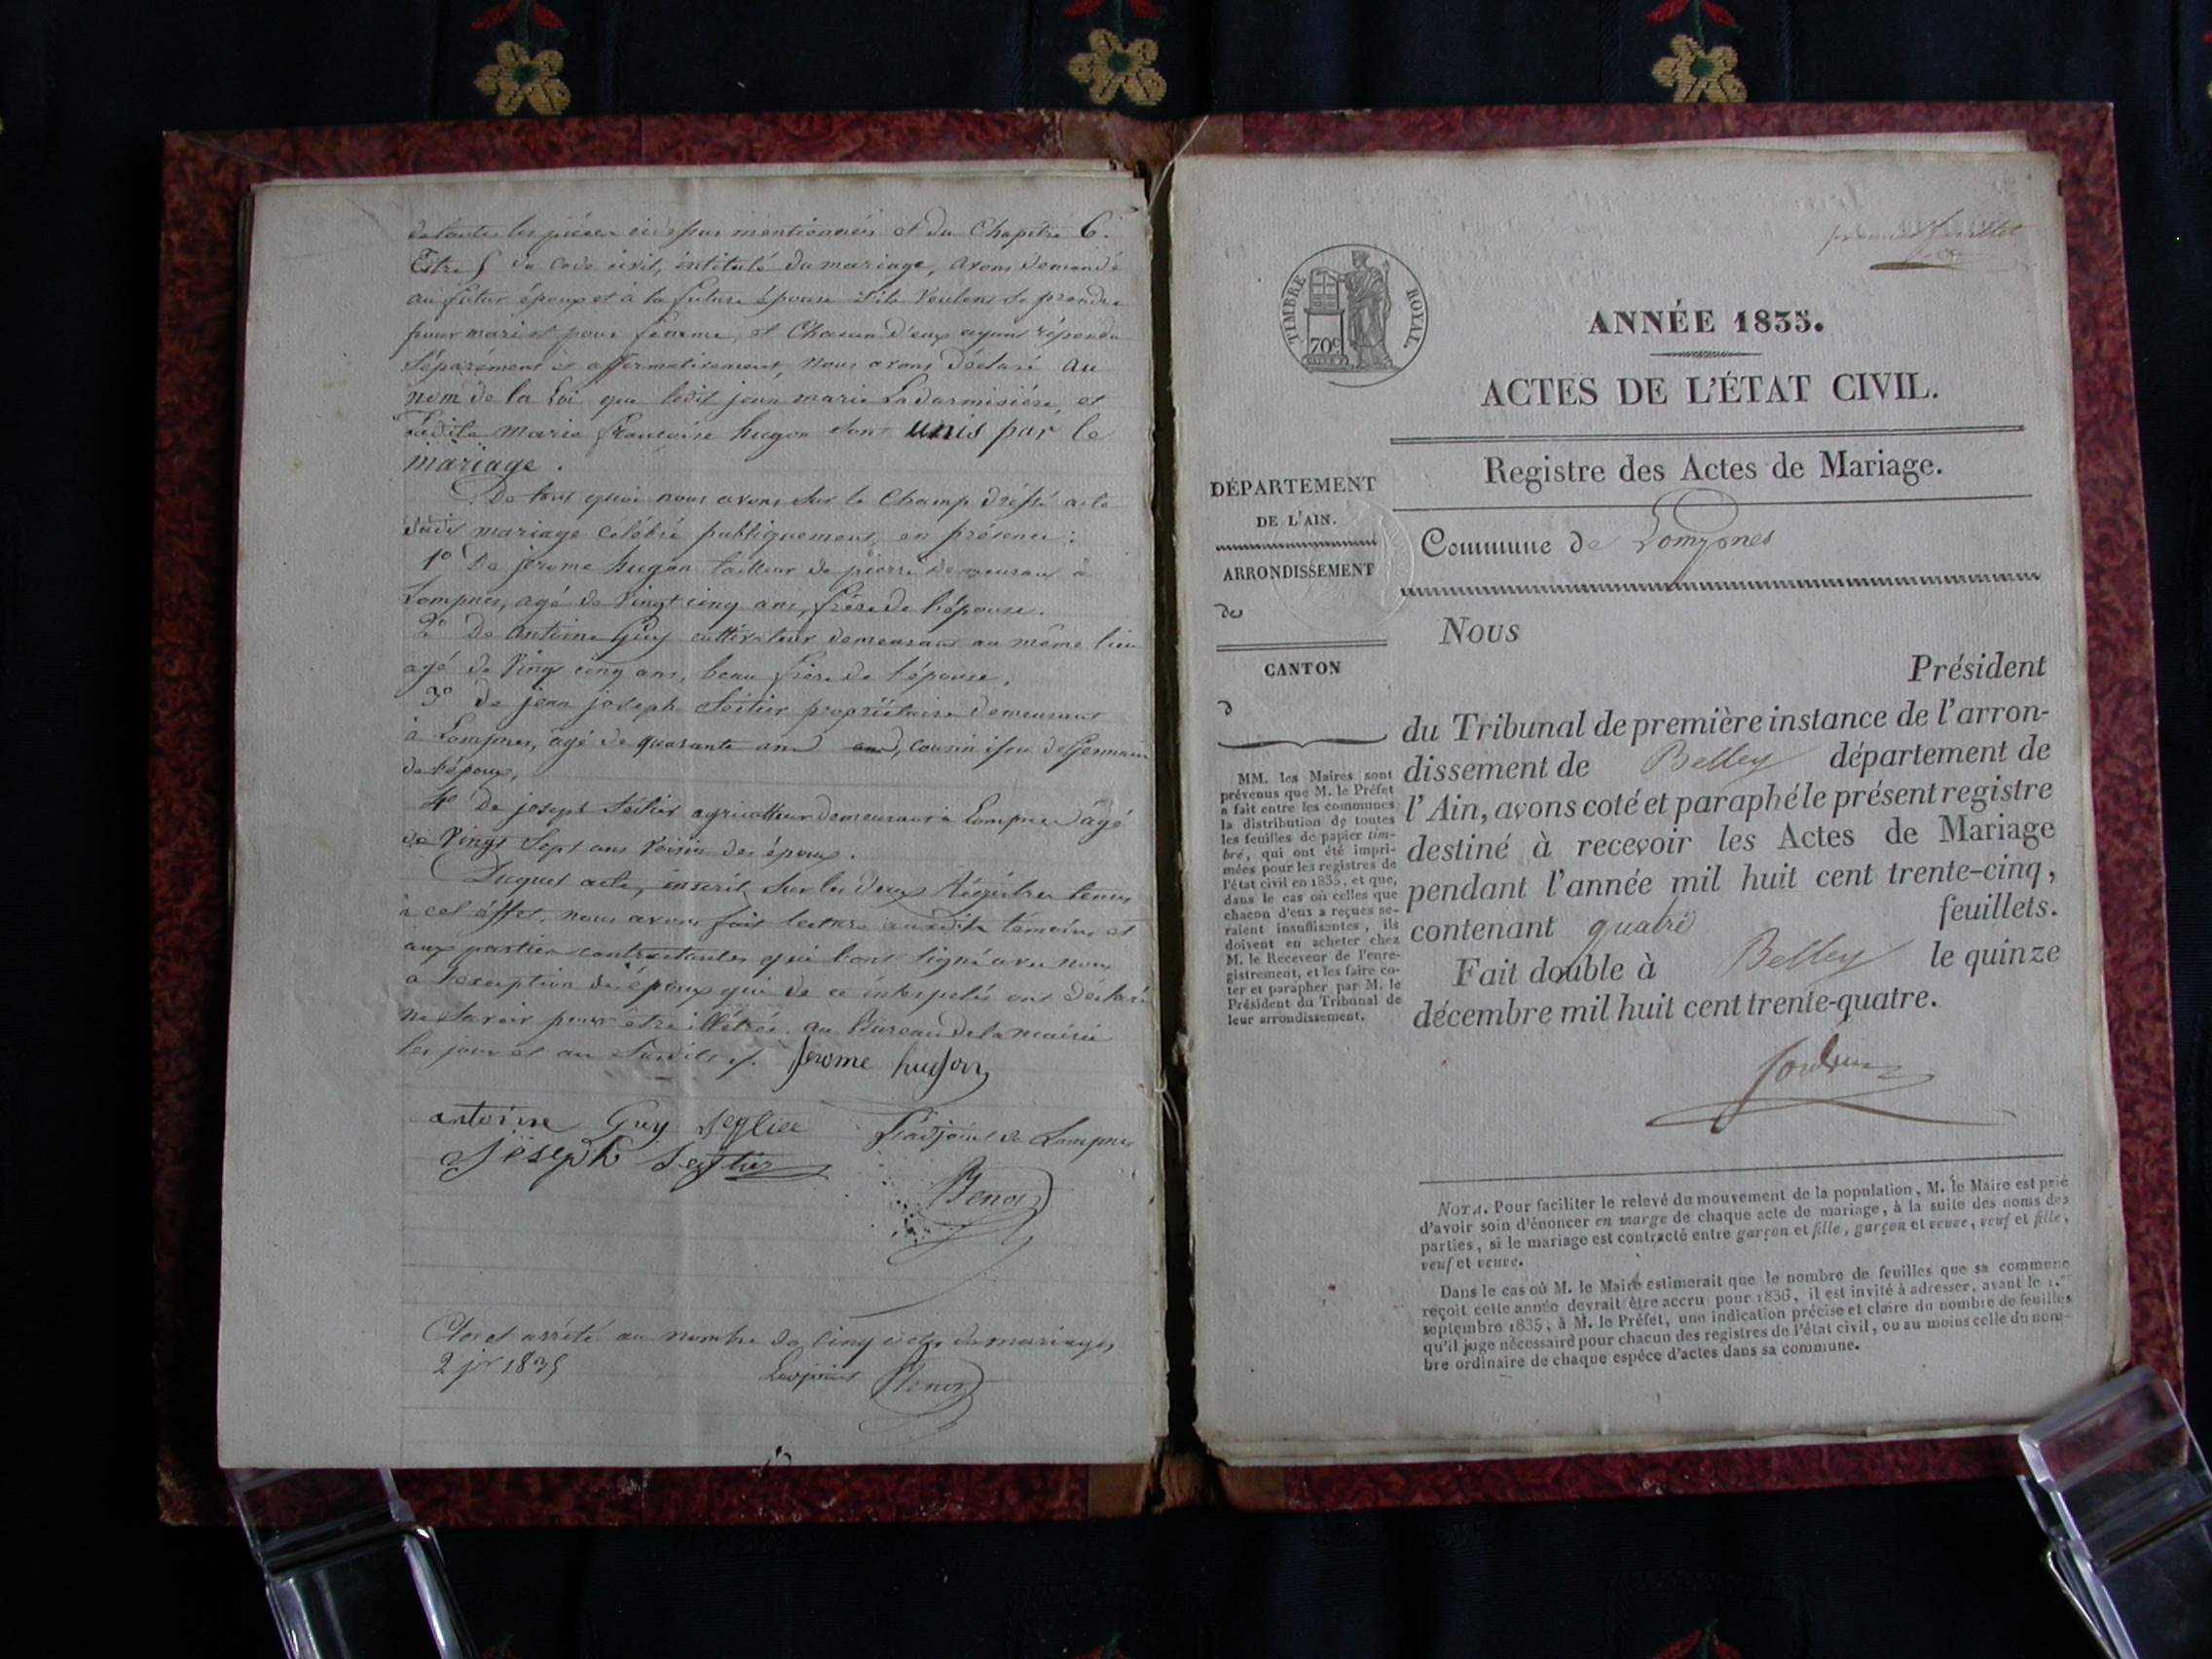 de toutes les pièces ci dessus mentionnées et du Chapitre 6.
Titre 5 du Code civil, intitulé du mariage, avons demandé
au futur époux et à la future épouse s'ils veulent se prendre
pour mari et pour femme, et Chacun d'eux ayant répondu
séparément et affirmativement, nous avons déclaré au
nom de la Loi que ledit jean marie Ladarmisiére, et
ladite marie françoise hugon sont unis par le
mariage.
De tout quoi nous avons sur le champ dréssé acte
dudit mariage célébré publiquement, en présence :
1º De jérome hugon tailleur de pierre demeurant à
Lompnes, agé de vingt cinq ans, frère de l'épouse.
2º De antoine Guy cultivateur demeurant au même lieu
agé de vingt cinq ans, beau frère de l'épouse.
3º de jean joseph Seitier propriétaire demeurant
à Lompnes, agé de quarante ans, cousin issu de Germain
de l'époux,
4º De joseph agriculteur demeurant à Lompnes âgé
de vingt sept ans voisin des époux.
Duquel acte, inscrit sur les deux régistres tenus
à cet éffet, nous avons fait lecture auxdits témoins et
aux parties contractantes qui l'ont signé avec nous
a l'exception des époux qui de ce interpelés ont déclaré
ne savoir pour être illétrés. au Bureau de la mairie
les jour et an susdits. jerome hugon
antoine Guy L'adjoint de Lompnes
joseph
Benor
Clos et arrêté au nombre de cinq actes de mariages
2 jr 1835 L'adjoint Benor
premier feuillet
TIMBRE ROYAL.
70c
ANNÉE 1835.
ACTES DE L'ÉTAT CIVIL.
Registre des Actes de Mariage.
DÉPARTEMENT
DE L'AIN.
ARRONDISSEMENT
de
CANTON
d
MM. les Maires sont
prévenus que M. le Préfet
a fait entre les communes
la distribution de toutes
les feuilles de papier tim-
bré, qui ont été impri-
mées pour les registres de
l'état civil en 1835, et que,
dans le cas où celles que
chacun d'eux a reçues se-
raient insuffisantes, ils
doivent en acheter chez
M. le Receveur de l'enre-
gistrement, et les faire co-
ter et parapher par M. le
Président du Tribunal de
leur arrondissement.
Commune de Lompnes
Nous
Président
du Tribunal de première instance de l'arron-
dissement de Belley département de
l'Ain, avons coté et paraphé le présent registre
destiné à recevoir les Actes de Mariage
pendant l'année mil huit cent trente-cinq,
contenant quatre feuillets.
Fait double à Belley le quinze
décembre mil huit cent trente-quatre.
NOTA. Pour faciliter le relevé du mouvement de la population, M. le Maire est prié
d'avoir soin d'énoncer en marge de chaque acte de mariage, à la suite des noms des
parties, si le mariage est contracté entre garçon et fille, garçon et veuve, veuf et fille,
veuf et veuve.
Dans le cas où M. le Maire estimerait que le nombre de feuilles que sa commune
reçoit cette année devrait être accru pour 1836, il est invité à adresser, avant le 1.er
septembre 1835, à M. le Préfet, une indication précise et claire du nombre de feuilles
qu'il juge nécessaire pour chacun des registres de l'état civil, ou au moins celle du nom-
bre ordinaire de chaque espèce d'actes dans sa commune.